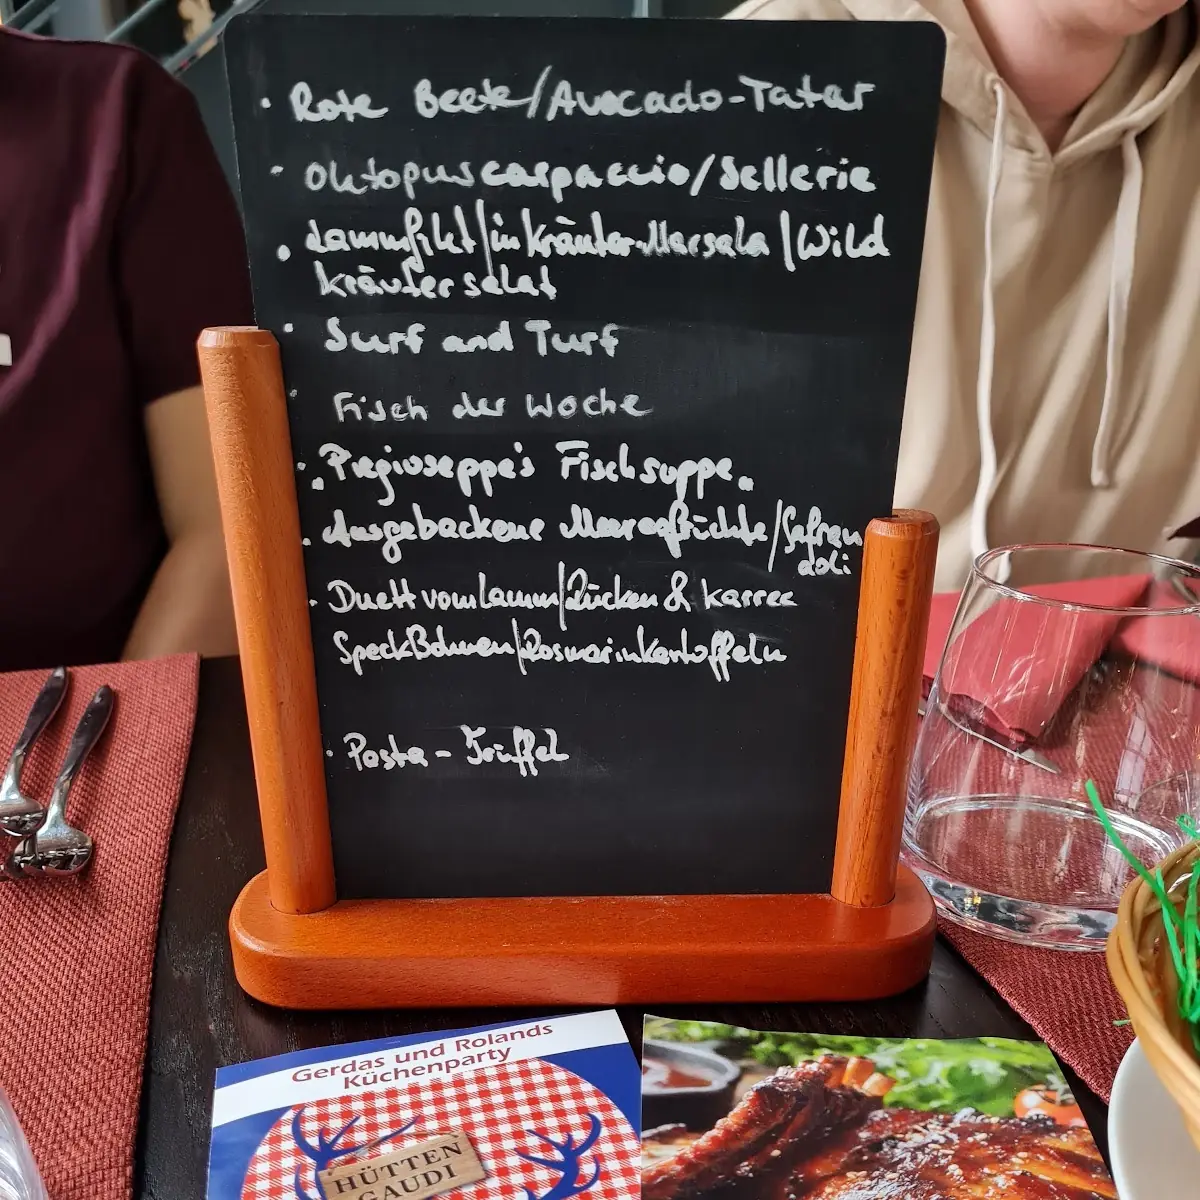 · Rote Beete/Avocado-Tatar
· Oktopuscarpaccio/Sellerie
· Lammfilet/in Kräuter-Marsala/Wild
kräutersalat
· Surf and Turf
· Fisch der Woche
· Piegiuseppe's Fischsuppe.
· Ausgebackene Meeresfrüchte/Safran
aoli
· Duett vom Lamm/Rücken & Karree
SpeckBohnen/Rosmarinkartoffeln
· Pasta-Trüffel
Gerdas und Rolands
Küchenparty
HÜTTEN
GAUDI